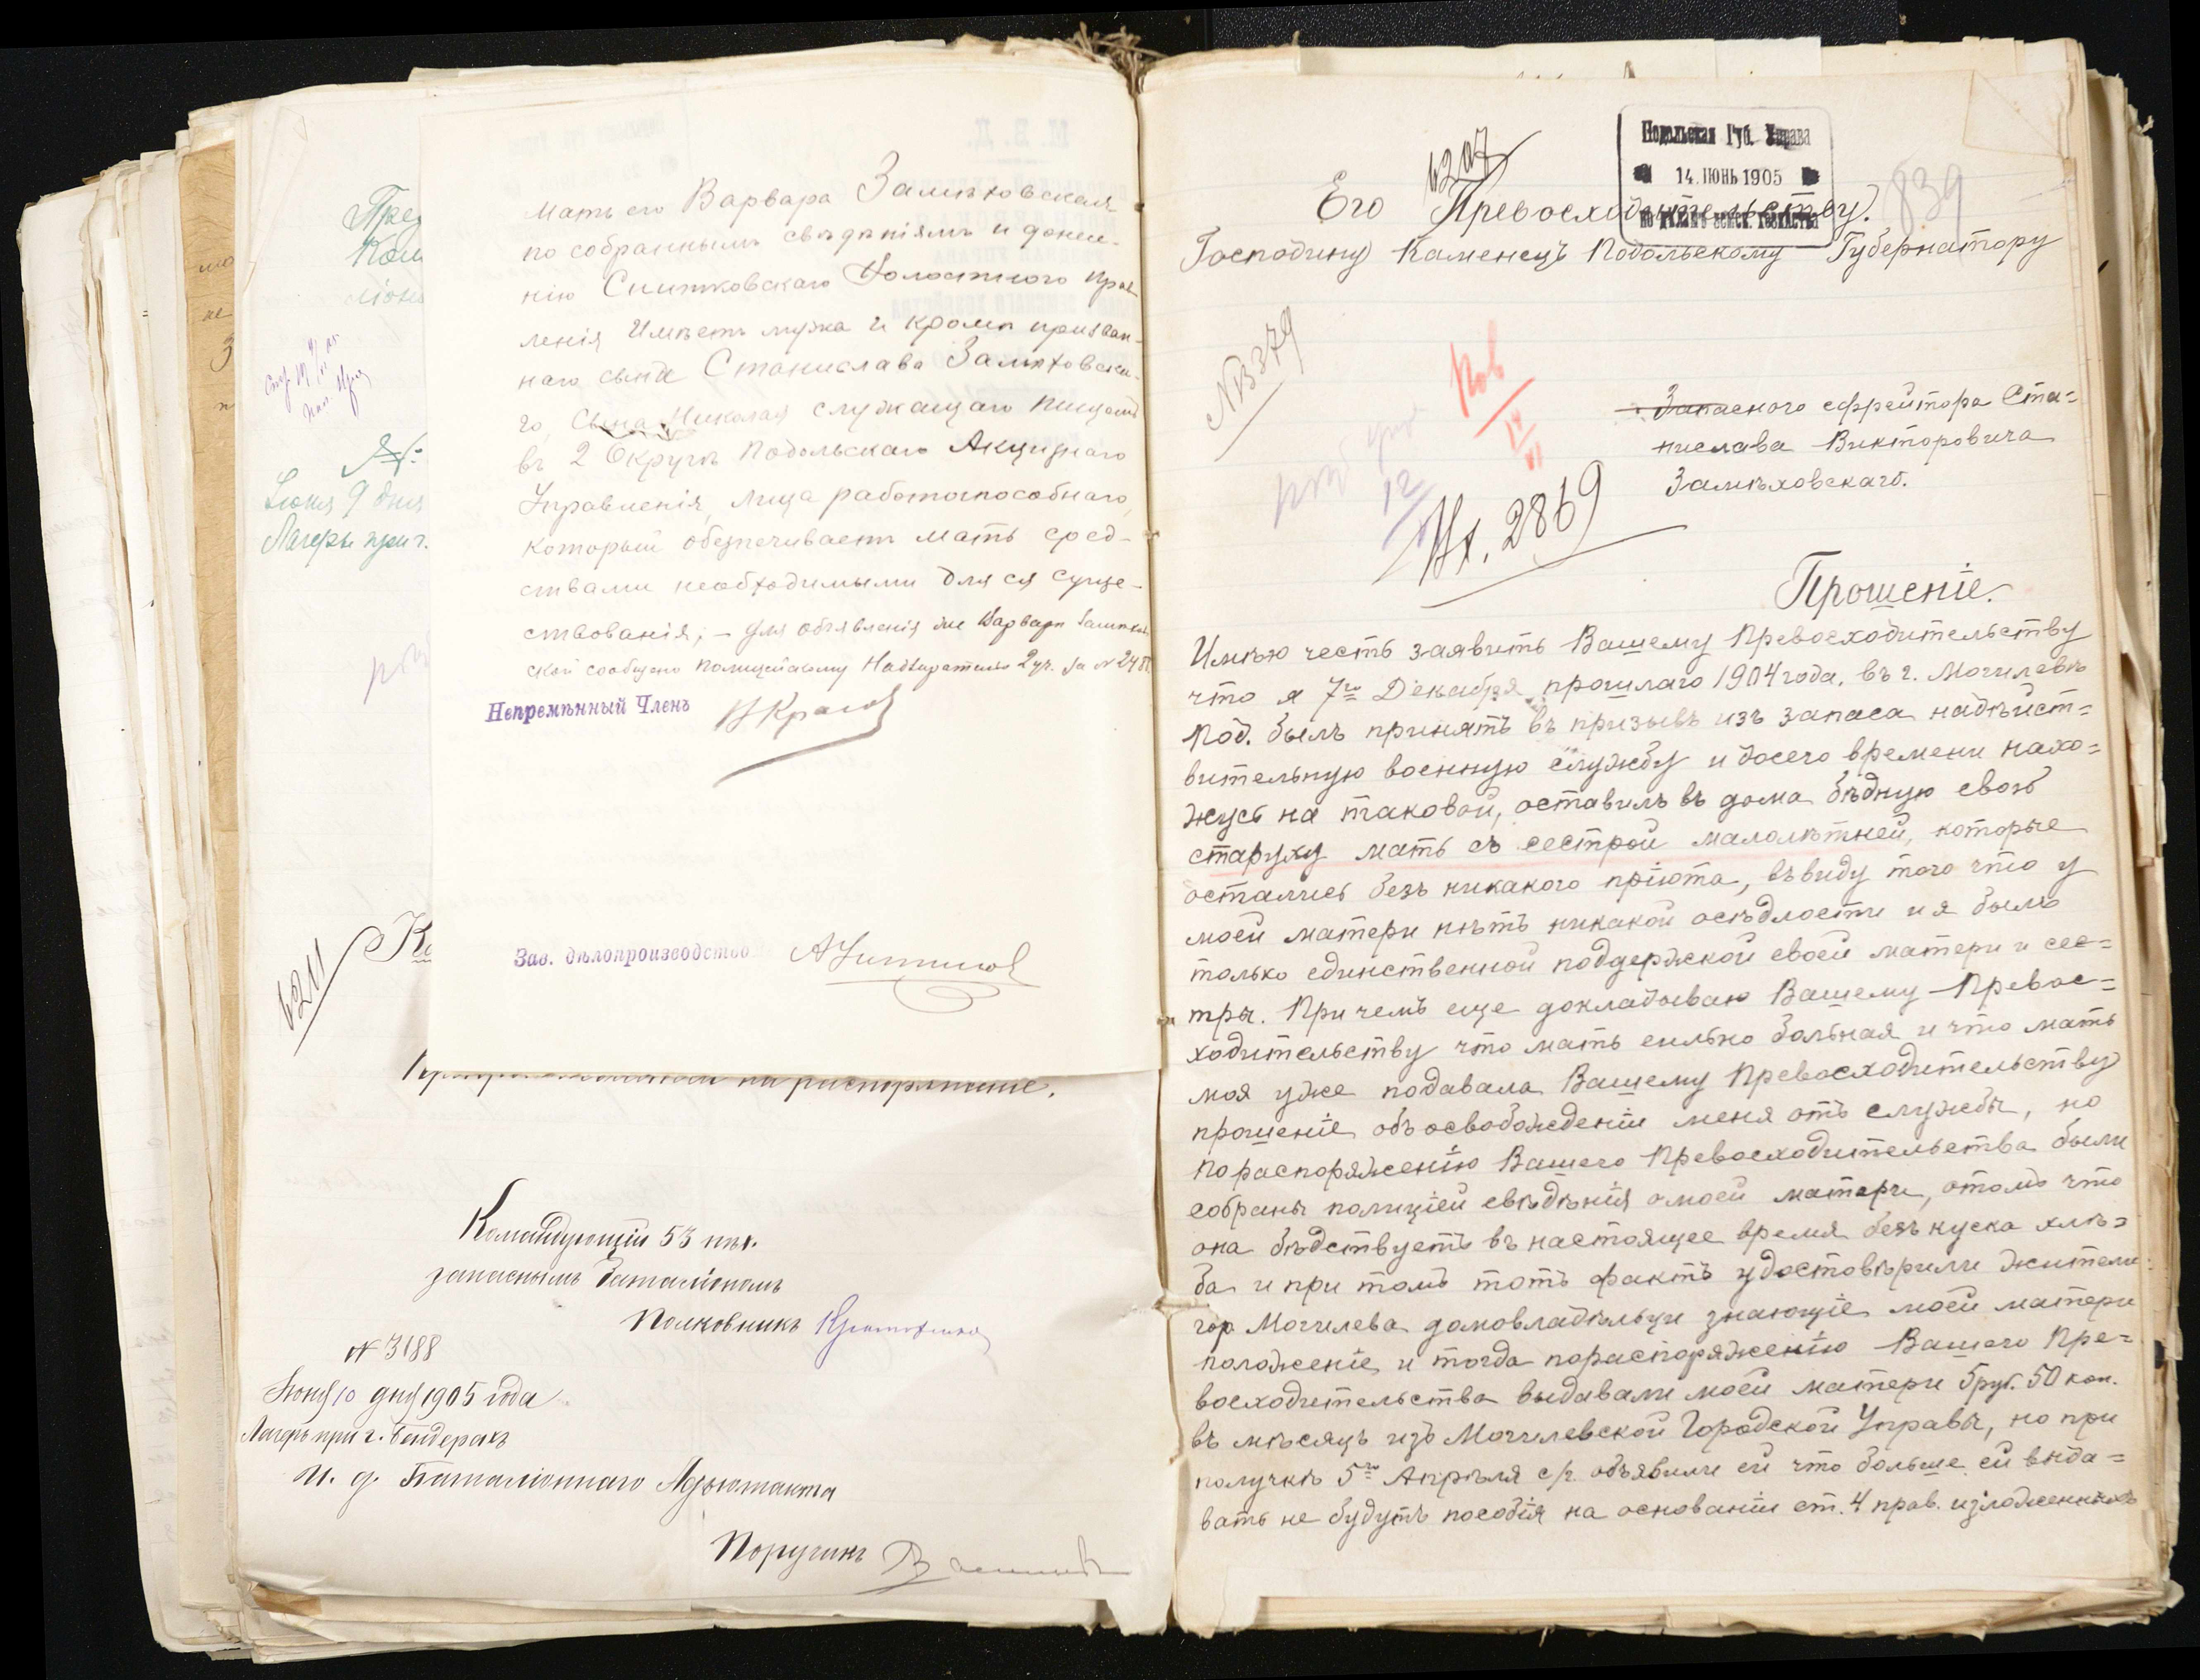 Мать его Варвара Замѣховская
по собраннымъ свѣдѣніямъ и донесе-
нію Снитковскаго Волостного Прав-
ленія имѣетъ мужа и кромѣ призван-
наго сына Станислава Замѣховска-
го, сына Николая служащаго писцомъ
въ 2 Округѣ Подольскаго Акцизнаго
Управленія, лица работоспособнаго,
который обезпечиваетъ мать сред-
ствами необходимыми для ея суще-
ствованія; – для объявленія же Варварѣ Замѣхов-
ской сообщено Полицейскому Надзирателю 2 уч. за № 248
Непремѣнный Членъ
Зав. дѣлопроизводство
Іюня 9 дня
Лагерь при г.
6211
на распоряженіе.
Командующій 53 пѣх.
запаснымъ баталіономъ
Полковникъ
№ 3188
Іюня 10 дня 1905 года
Лагерь при г. Бендерахъ
И. д. Баталіоннаго Адъютанта
Поручикъ
6207
Подольская Губ. Управа
14. ІЮНЬ 1905
839
Его Превосходительству.
Господину Каменецъ Подольскому Губернатору
№ 379
Вх. 2869
Запасного ефрейтора Ста=
нислава Викторовича
Замѣховскаго.
Прошеніе.
Имѣю честь заявить Вашему Превосходительству
что я 7го Декабря прошлаго 1904 года. въ г. Могилевѣ
Под. былъ принятъ въ призывъ изъ запаса надѣйст=
вительную военную службу и досего времени нахо=
жусь на таковой, оставилъ въ дома бѣдную свою
старуху мать съ сестрой малолѣтней, которые
остались безъ никакого пріюта, въвиду того что у
моей матери нѣтъ никакой осѣдлости и я былъ
только единственной поддержкой своей матери и сес=
тры. При чемъ еще докладываю Вашему Превос=
ходительству что мать сильно больная и что мать
моя уже подавала Вашему Превосходительству
прошеніе объ освобожденіи меня отъ службы, но
по распоряженію Вашего Превосходительства были
собраны полиціей свѣдѣнія о моей матери, отомъ что
она бѣдствуетъ въ настоящее время безъ куска хлѣ=
ба и при томъ тотъ фактъ удостовѣрили жители
гор Могилева домовладѣльци знающіе моей матери
положеніе и тогда пораспоряженію Вашего Пре=
восходительства выдавали моей матери 5 руб. 50 коп.
въ мѣсяцъ изъ Могилевской Городской Управы, но при
получкѣ 5го Апрѣля с/г. объявили ей что больше ей выда=
вать не будутъ пособія на основаніи ст. 4 прав. изложенныхъ